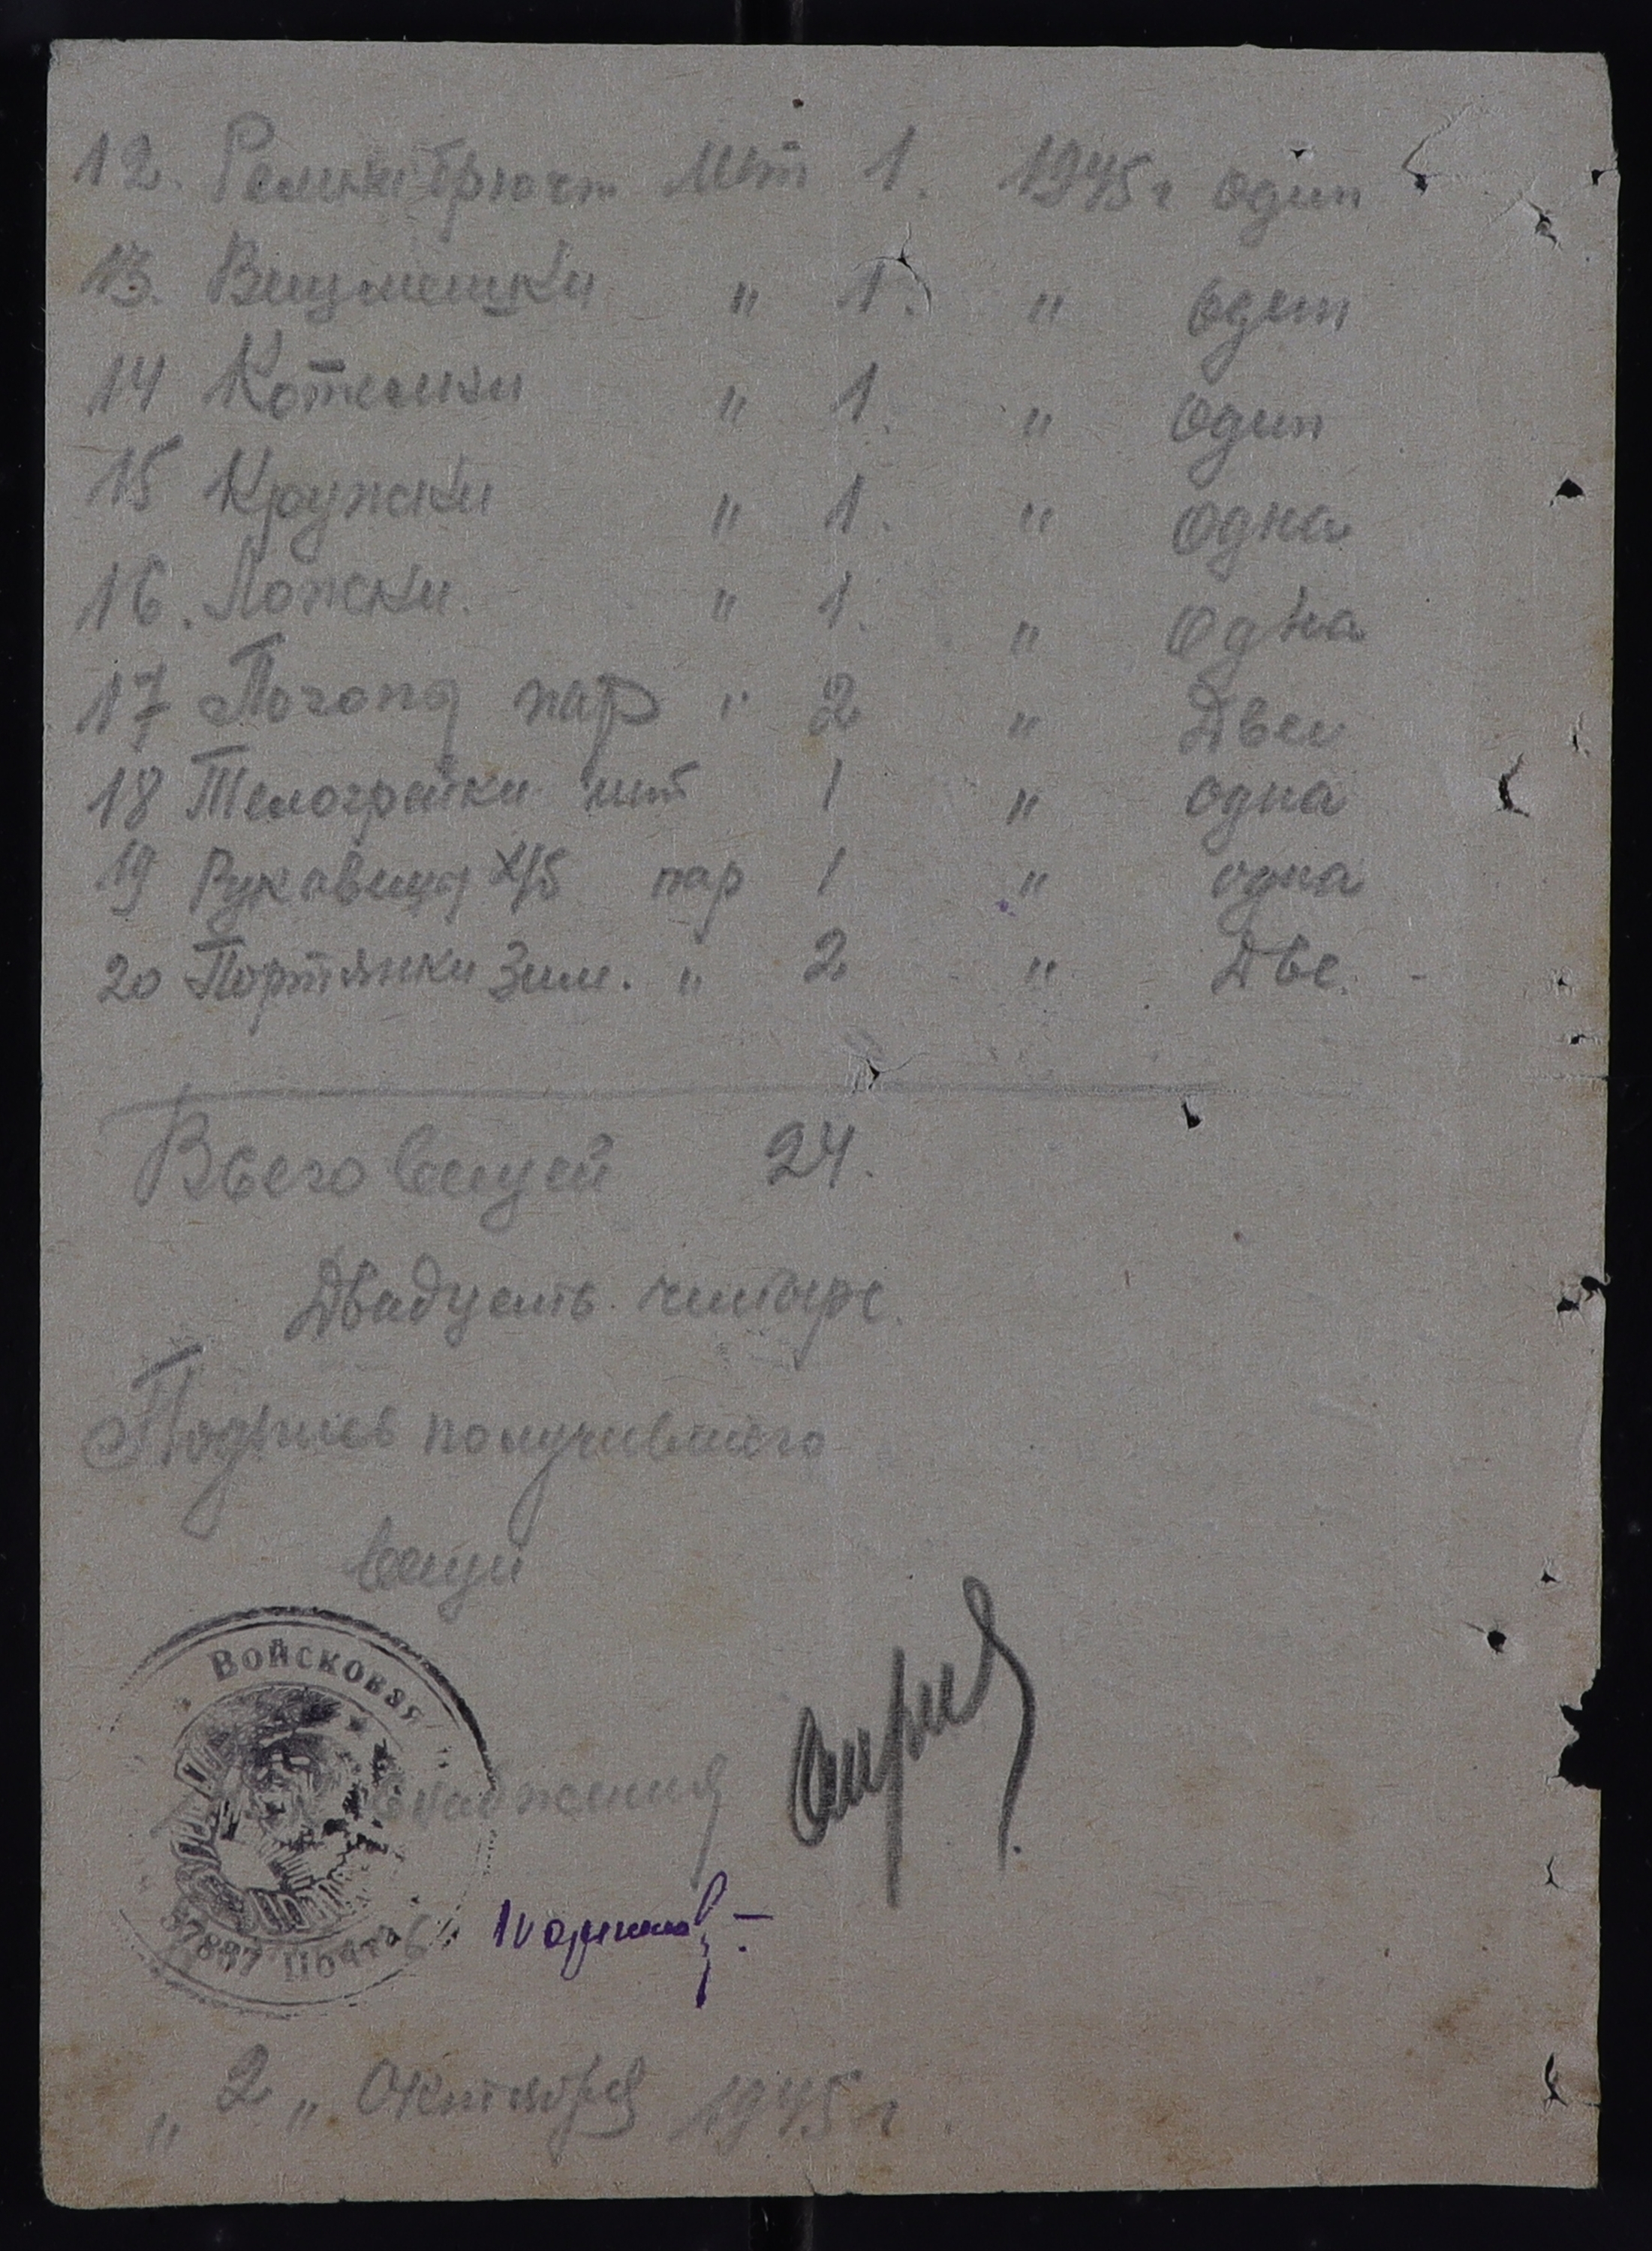 12. Ремни брючн шт 1. 1945 г один
13. Вещмешки " 1. " один
14 Котелки " 1. " один
15 Кружки " 1. " одна
16. Ложки. " 1. " одна
17 Погоны пар " 2 " Две
18 Телогрейки шт 1 " одна
19 Рукавицы х/б пар 1 " одна
20 Портянки Зим. " 2 " Две.
Всего вещей 24.
Двадцать читыре.
Подпись получившего
вещи
Войсковая
снабжения
57887 Почта
" 2 " Октября 1945 г.